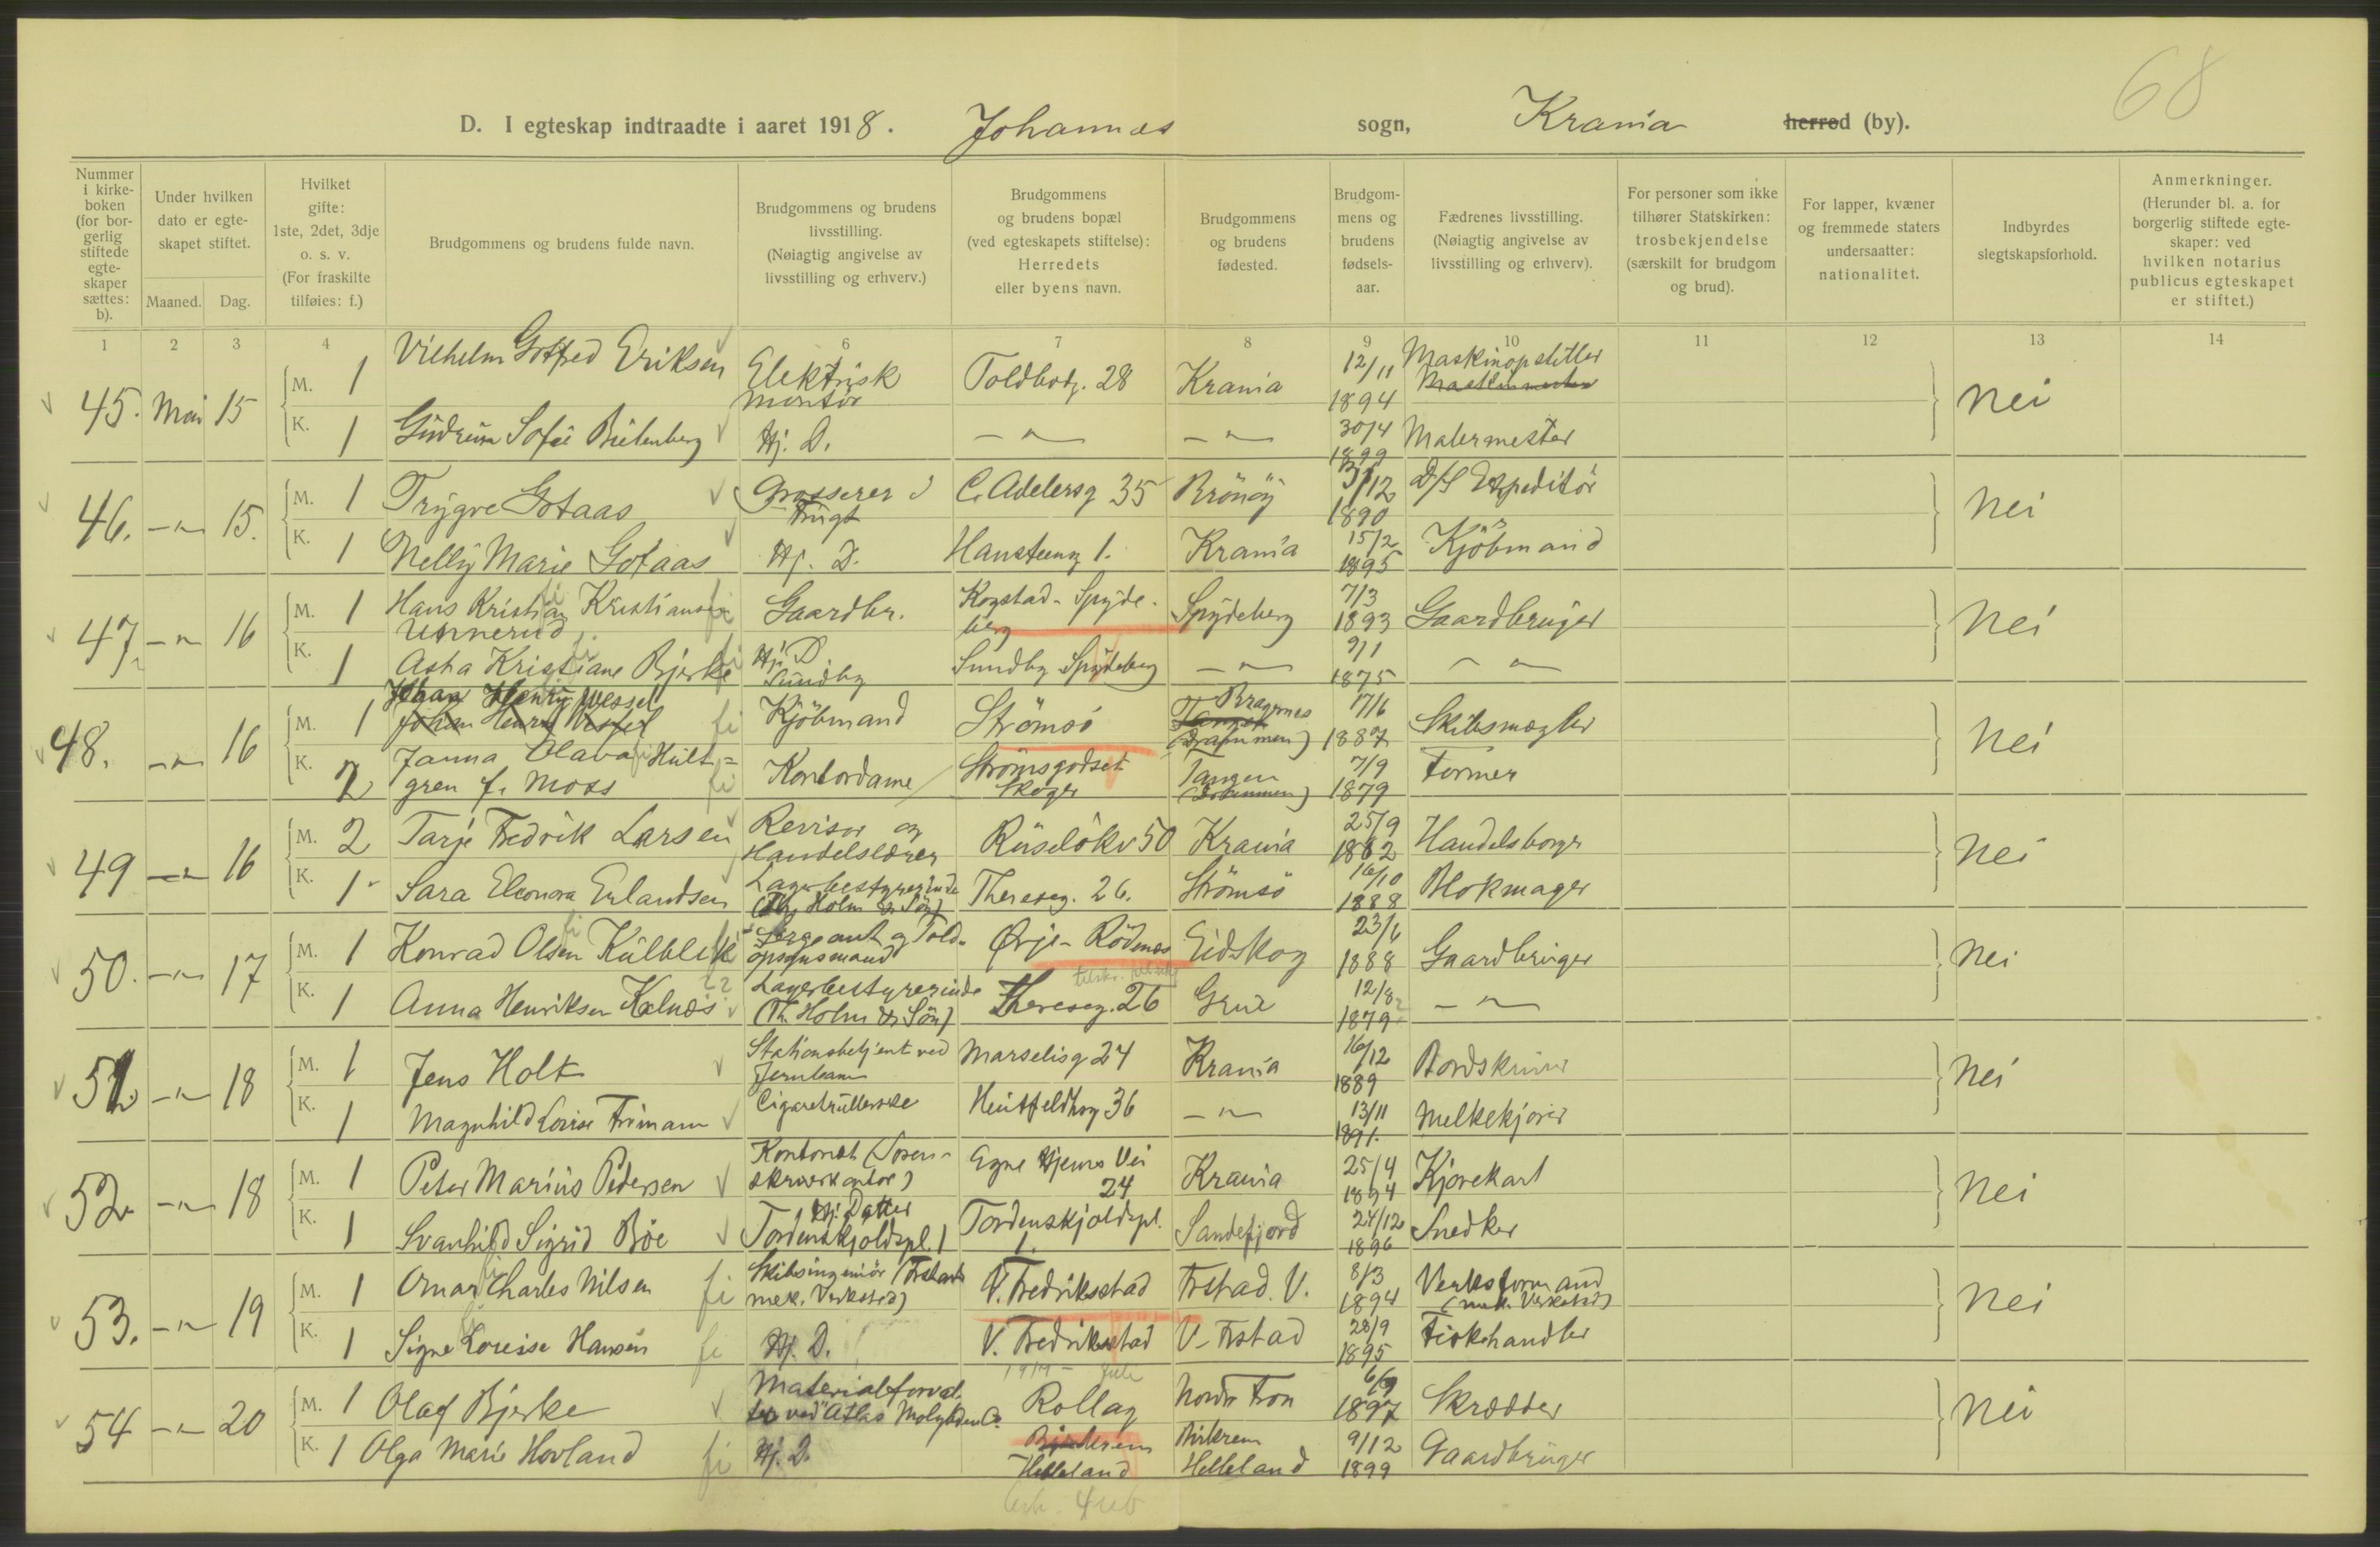 68
D. I egteskap indtraadte i aaret 1918. Johannes sogn, Krania herred (by).
Nummer i kirke- boken (for bor- gerlig stiftede egte- skaper sættes: b).
Under hvilken dato er egte- skapet stiftet.
Maaned. Dag.
Hvilket gifte: 1ste, 2det, 3dje o. s. v. (For fraskilte tilføies: f.)
Brudgommens og brudens fulde navn.
Brudgommens og brudens livsstilling. (Nøiagtig angivelse av livsstilling og erhverv.)
Brudgommens og brudens bopæl (ved egteskapets stiftelse): Herredets eller byens navn.
Brudgommens og brudens fødested.
Brudgom- mens og brudens fødsels- aar.
Fædrenes livsstilling. (Nøiagtig angivelse av livsstilling og erhverv).
For personer som ikke tilhører Statskirken: trosbekjendelse (særskilt for brudgom og brud).
For lapper, kvæner og fremmede staters undersaatter: nationalitet.
Indbyrdes slegtskapsforhold.
Anmerkninger. (Herunder bl. a. for borgerlig stiftede egte- skaper: ved hvilken notarius publicus egteskapet er stiftet.)
1 2 3 4 6 7 8 9 10 11 12 13 14
45. Mai 15 M. 1 Vilhelm Gotfred Eriksen Elektrisk montør Toldbodg. 28 Krania 12/11 1894 Maskinopsetter Nei
K. 1 Gudrun Sofie Bielenberg Hj. D. -"- -"- 30/4 1899 Malermester
46. -"- 15. M. 1 Trygve Gotaas Grosserer i Frugt C. Adelersg 35 Brönöy 31/12 1890 D/S Expeditör Nei
K. 1 Nelly Marie Gotaas Hj. D. Hansteensg 1. Krania 15/2 1895 Kjöbmand
47, -"- 16 M. 1 Hans Kristian Kristiansen Unnerud Gaardbr. Kogstad - Spyde- berg Spydeberg 7/3 1893 Gaardbruger Nei
K. 1 Asta Kristiane Bjerke Hj. D Sundby Sundby Spydeberg -"- 9/1 1875 -"-
48. -"- 16 M. 1 Johan Henry Wessel Johan Henry Wessel Kjöbmand Strömsö Bragernes Tangen (Drammen) 17/6 1887 Skibsmægler Nei
K. 2 Janna Olava Hult= gren f. Moss Kontordame Strömsgodset Skoger Tangen (Drammen) 7/9 1879 Former
49 -"- 16 M. 2 Tarje Fredrik Larsen Revisor og Handelslærer Rüselökv 50 Krania 25/9 1882 Handelsborger Nei
K. 1 Sara Eleonora Erlandsen Lagerbestyrerinde (Th. Holm & Sön) Theresesg. 26. Strömsö 16/10 1888 Blokmager
50. -"- 17 M. 1 Konrad Olsen Külblik Sergeant og Told- opsynsmand Ørje - Rödenes Eidskog 23/6 1888 Gaardbruger Nei
K. 1 Anna Henriksen Kalnæs Lagerbestyrerinde (Th. Holm & Sön) Theresesg. 26 Grue 12/8 1879 -"-
51. -"- 18 M. 1 Jens Holt Stationsbetjent ved Jernbanen Marselisg 24 Krania 16/12 1889 Bordskriver Nei
K. 1 Magnhild Lovise Frimann Cigaretrullerske Heitfeldtsg 36 -"- 13/11 1891. Melkekjører
52. -"- 18 M. 1 Peter Marius Pedersen Kontorist (Soren- skriverkontor) Egne Hjems Vei 24 Krania 25/4 1894 Kjørekarl Nei
K. 1 Svanhild Sigrid Böe Hj. Datter Tordenskjoldspl. 1 Tordenskjoldspl. 1. Sandefjord 24/12 1896 Snedker
53. -"- 19 M. 1 Omar Charles Nilsen Skibsingeniör (Frstads mek. Verksted) V. Fredriksstad Frstad. V. 8/3 1894 Verksformand (mek. Verksted) Nei
K. 1 Signe Lovisse Hansen Hj. D. V. Fredriksstad V. Frstad 28/9 1895 Fiskehandler
54 -"- 20 M. 1 Olaf Bjerke Materialforval- ter ved "Atlas Molybden Co. Rollag Nordr Fron 6/9 1897 Skrædder Nei
K. 1 Olga Marie Hovland Hj. D. Bjerkrem Helleland Birkrem Helleland 9/12 1899 Gaardbruger